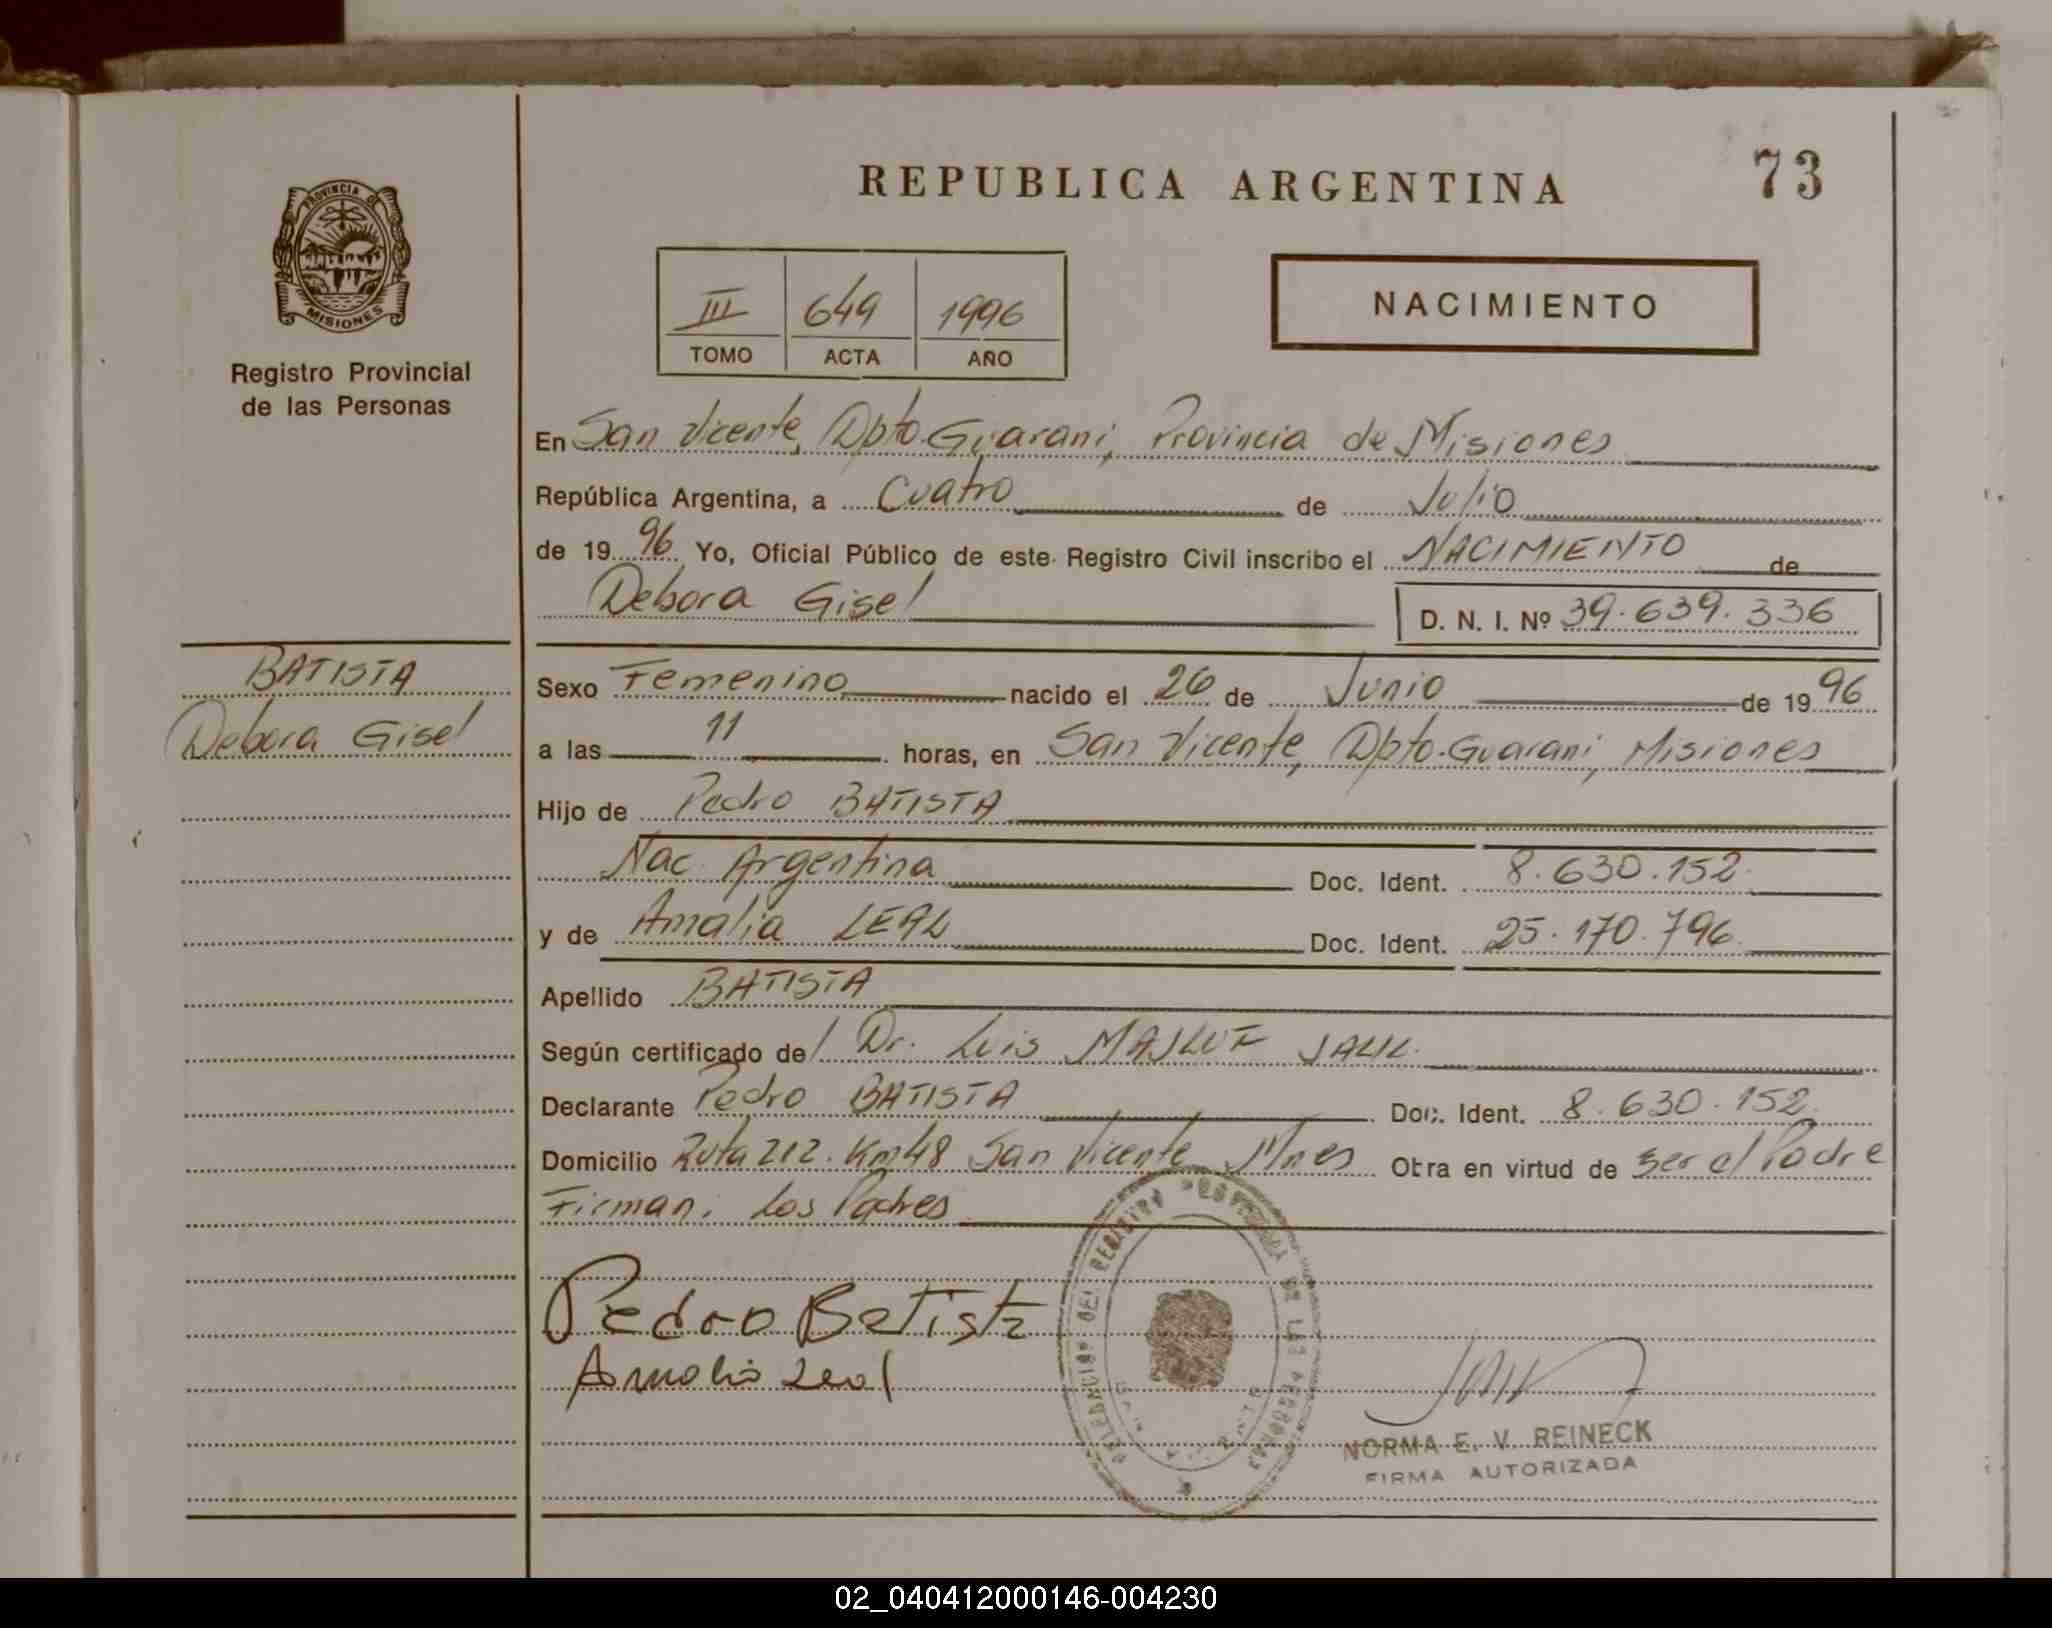 REPUBLICA ARGENTINA
73
PROVINCIA DE
MISIONES
Registro Provincial
de las Personas
III 649 1996
TOMO ACTA AÑO
NACIMIENTO
En San Vicente, Dpto. Guarani, Provincia de Misiones
República Argentina, a Cuatro de Julio
de 1996 Yo, Oficial Público de este Registro Civil inscribo el NACIMIENTO de
Debora Gisel
D. N. I. Nº 39.639.336
BATISTA
Debora Gisel
Sexo Femenino nacido el 26 de Junio de 1996
a las 11 horas, en San Vicente, Dpto. Guarani, Misiones
Hijo de Pedro BATISTA
Nac. Argentina Doc. Ident. 8.630.152
y de Amalia LEAL Doc. Ident. 25.170.796
Apellido BATISTA
Según certificado del Dr. Luis MAJLUF JALIL
Declarante Pedro BATISTA Doc. Ident. 8.630.152
Domicilio Ruta 212. Km 48 San Vicente Mnes Obra en virtud de ser el Padre
Firman: Los Padres
Pedro Batista
Amalia Leal
DELEGACION DEL REGISTRO PROVINCIAL DE LAS PERSONAS
NORMA E. V. REINECK
FIRMA AUTORIZADA
02_040412000146-004230